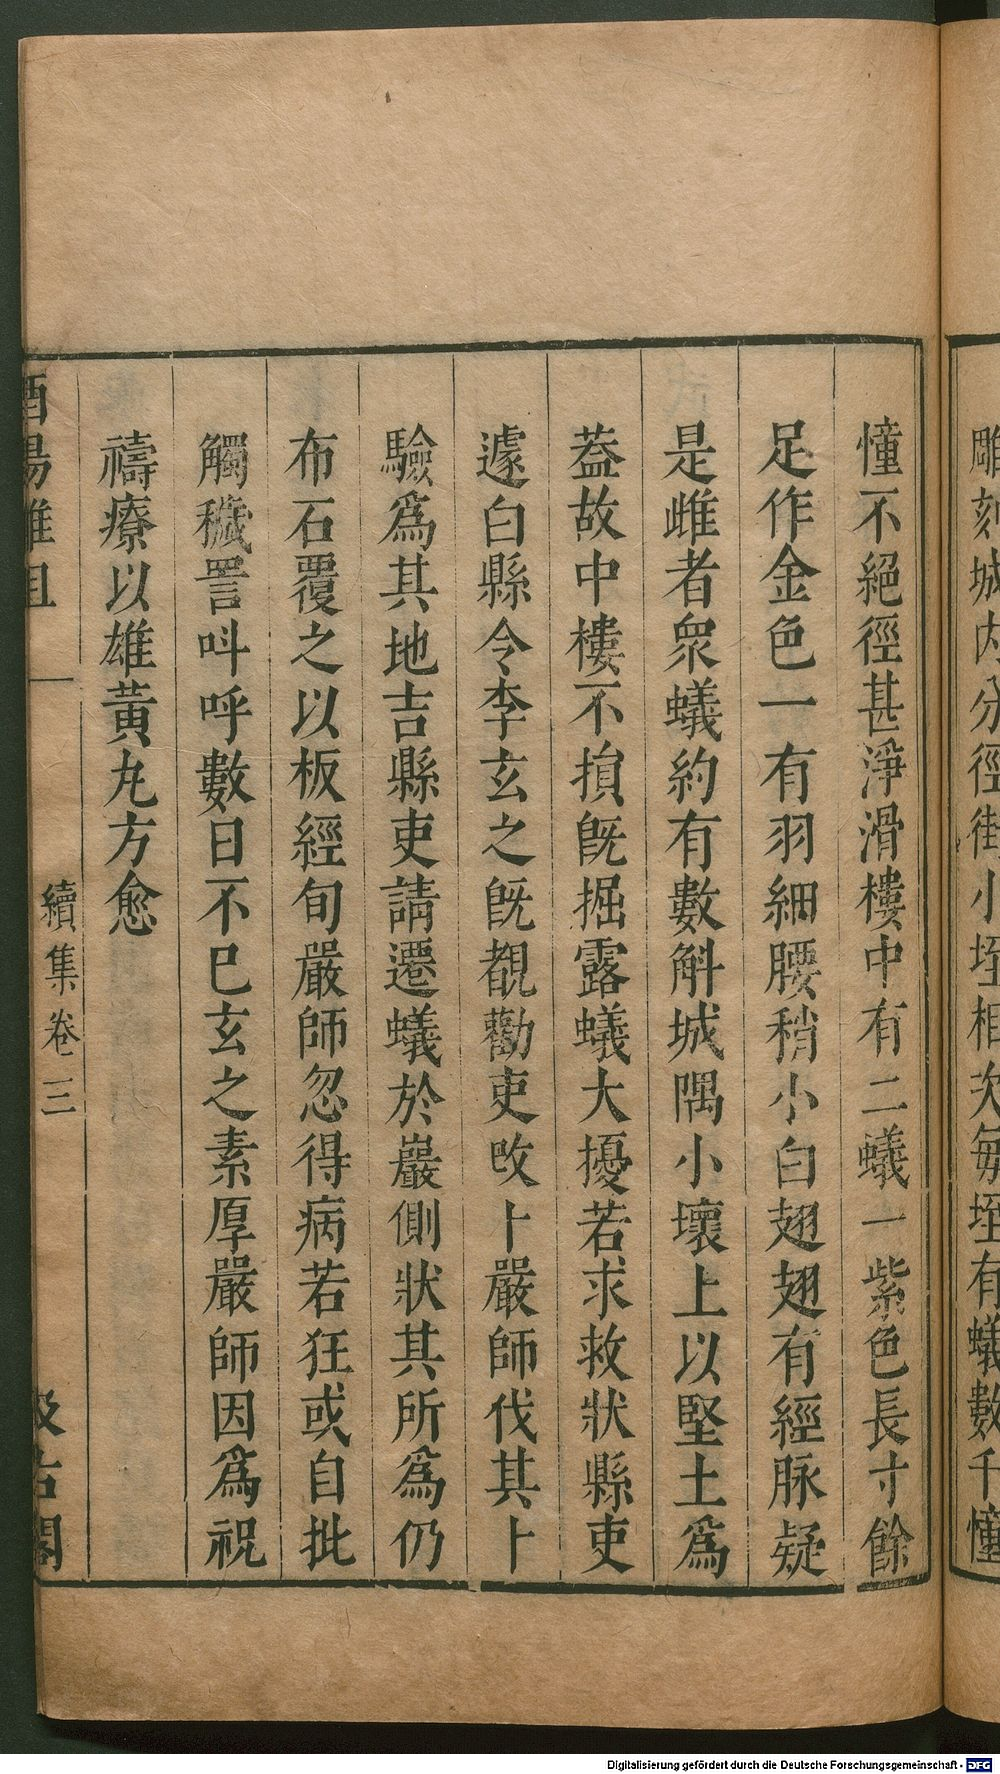 雕刻城内分徑街小垤相次每垤有蟻數千憧
憧不絕徑甚淨滑樓中有二蟻一紫色長寸餘
足作金色一有羽細腰稍小白翅翅有經脉疑
是雌者衆蟻約有數斛城隅小壞上以堅土爲
葢故中樓不損旣掘露蟻大擾若求救狀縣吏
遽白縣令李玄之旣覩勸吏攺卜嚴師伐其卜
驗爲其地吉縣吏請遷蟻於巖側狀其所爲仍
布石覆之以板經旬嚴師忽得病若狂或自批
觸穢詈呌呼數日不巳玄之素厚嚴師因爲祝
禱療以雄黄丸方愈
酉陽雜俎 續集卷三 汲古閣
Digitalisierung gefördert durch die Deutsche Forschungsgemeinschaft - DFG